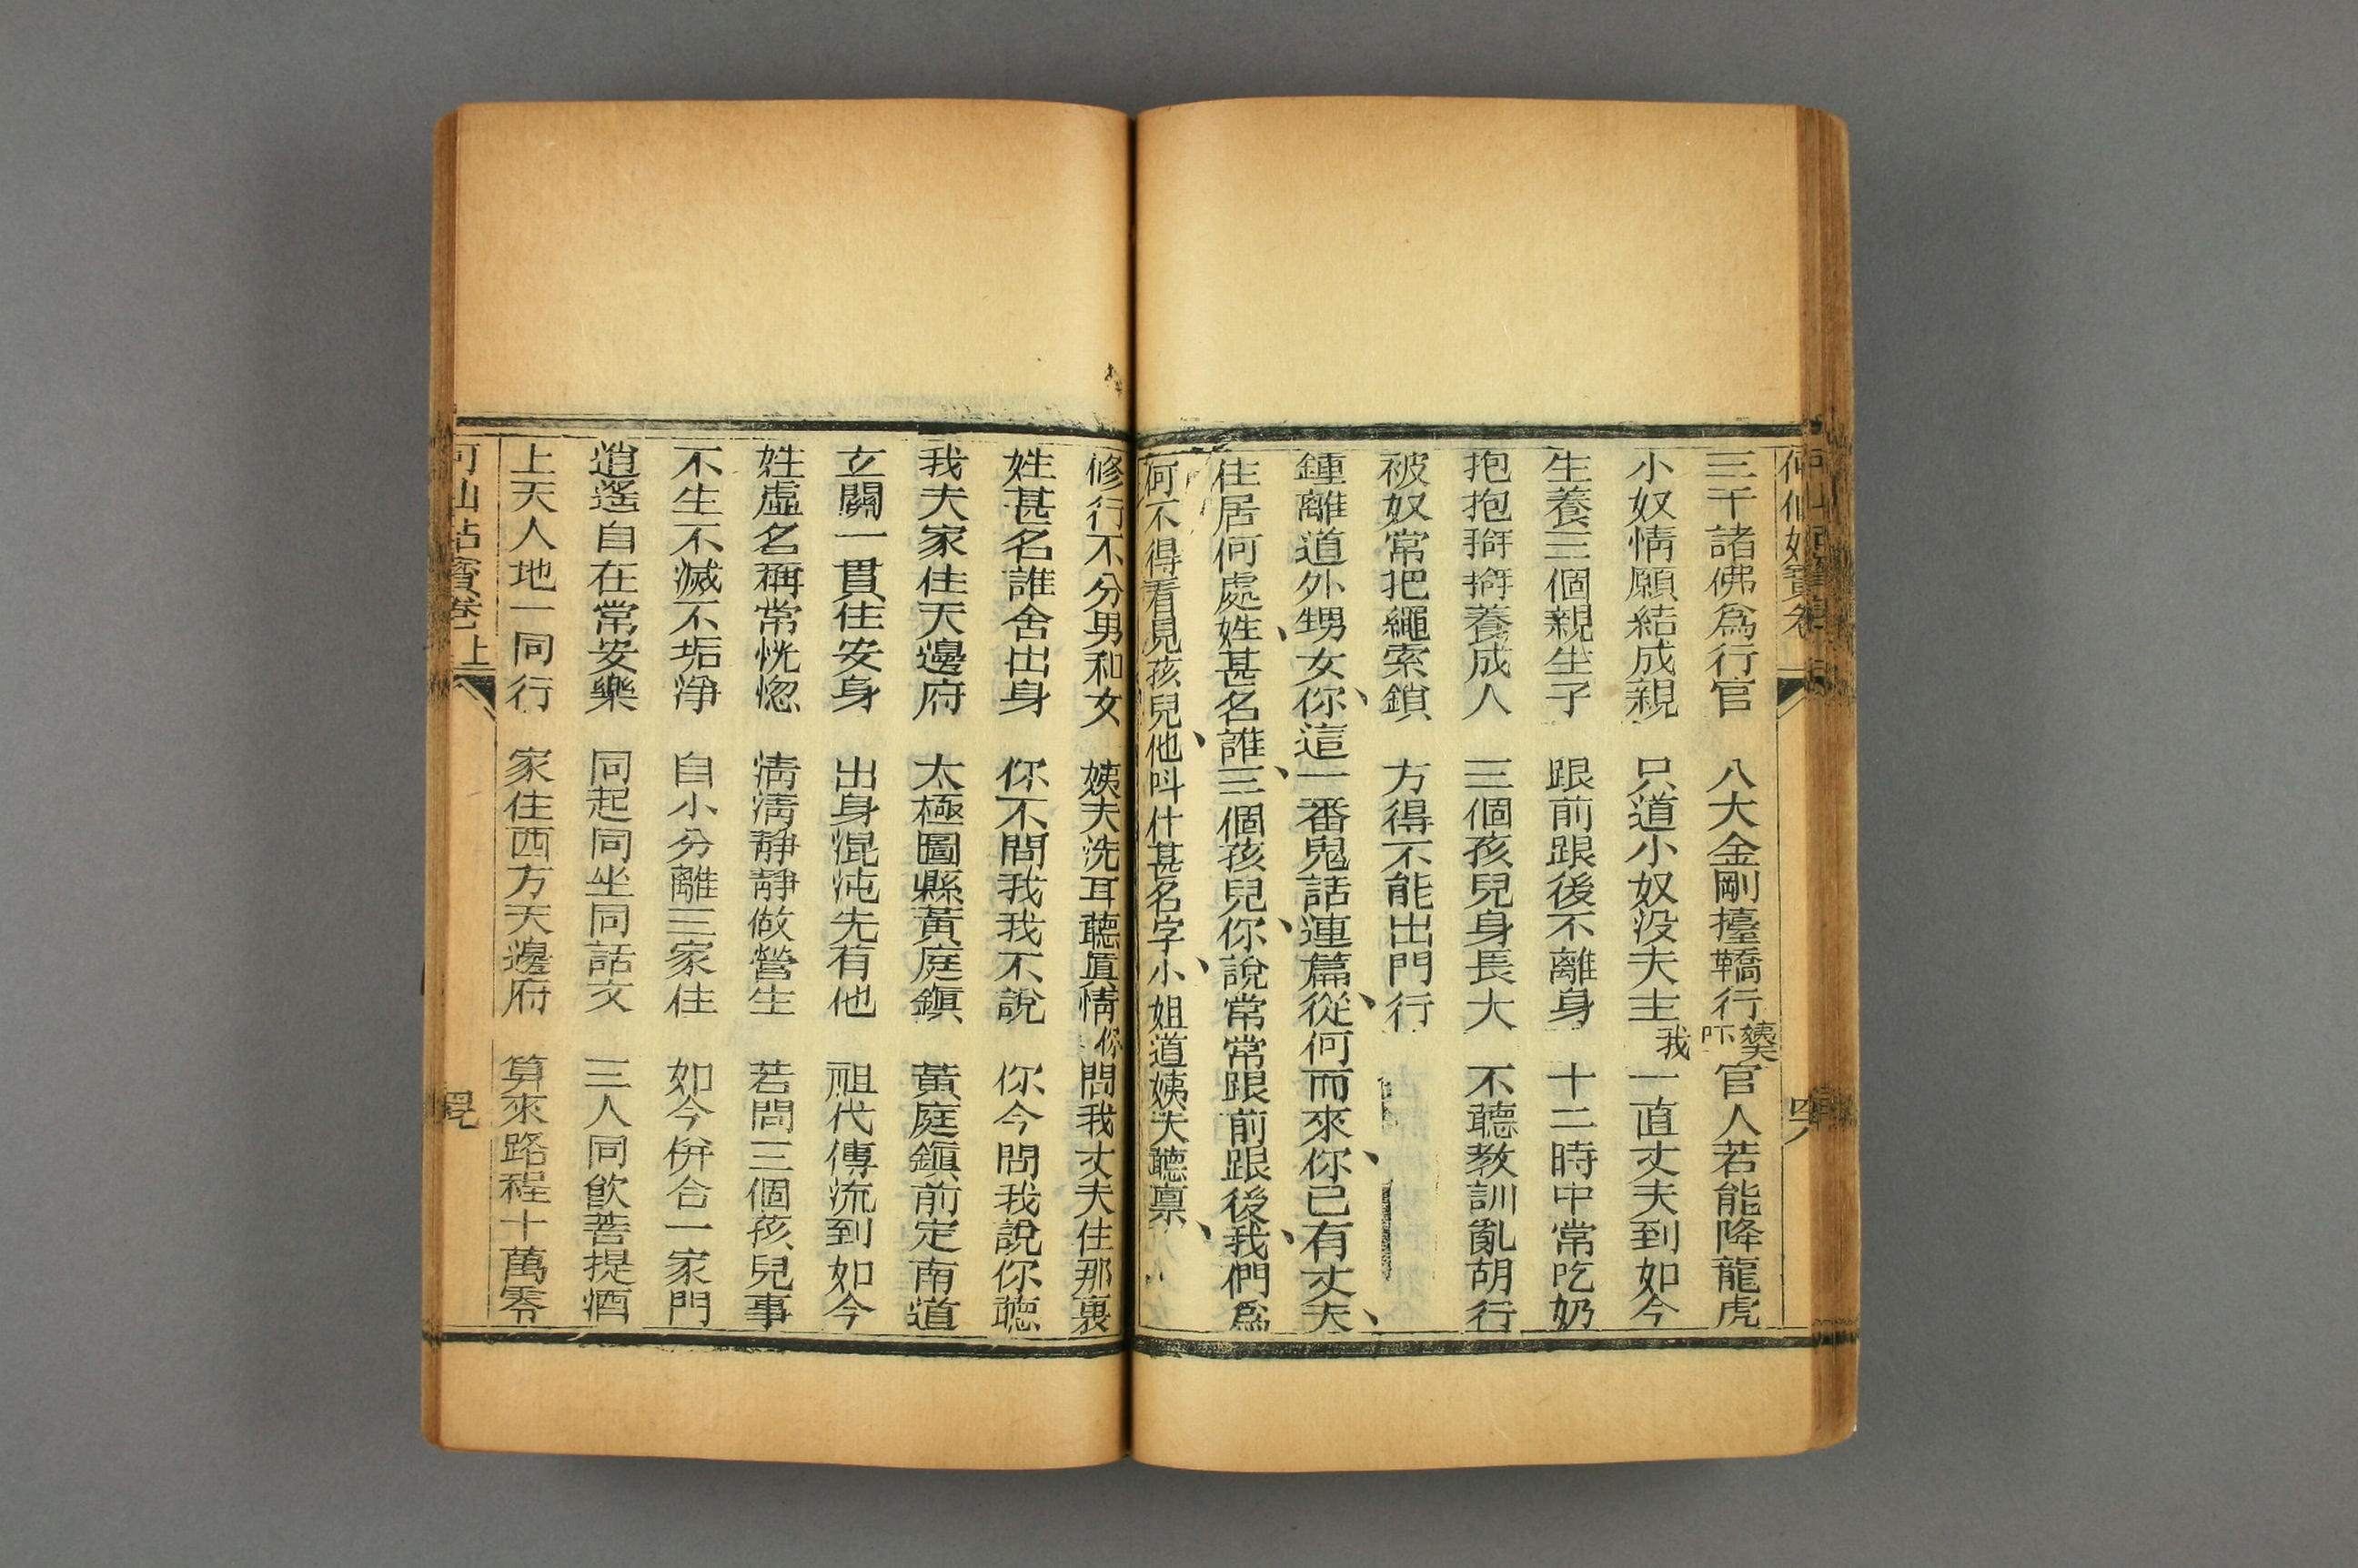 三千諸佛爲行官 八大金剛擡轎行 姨夫吓 官人若能降龍虎
小奴情願結成親 只道小奴没夫主 我一直丈夫到如今
生養三個親生子 跟前跟後不離身 十二時中常吃奶
抱抱搿搿養成人 三個孩兒身長大 不聽教訓亂胡行
被奴常把繩索鎖 方得不能出門行
鍾離道外甥女你、這一番鬼話連篇、從何而來、你已有丈夫、
住居何處、姓甚名誰、三個孩兒、你說常常跟前跟後、我們爲
何不得看見孩兒、他呌什甚名字、小姐道姨夫聽禀、
修行不分男和女 姨夫洗耳聽眞情 你問我丈夫住那裏
姓甚名誰舍出身 你不問我我不說 你今問我說你聽
我夫家住天邊府 太極圖縣黃庭鎮 黃庭鎮前定南道
玄關一貫住安身 出身混沌先有他 祖代傳流到如今
姓虛名稱常恍惚 淸淸靜靜做營生 若問三個孩兒事
不生不滅不垢淨 自小分離三家住 如今併合一家門
逍遙自在常安樂 同起同坐同話文 三人同飲菩提酒
上天人地一同行 家住西方天邊府 算來路程十萬零
何仙姑寶卷上